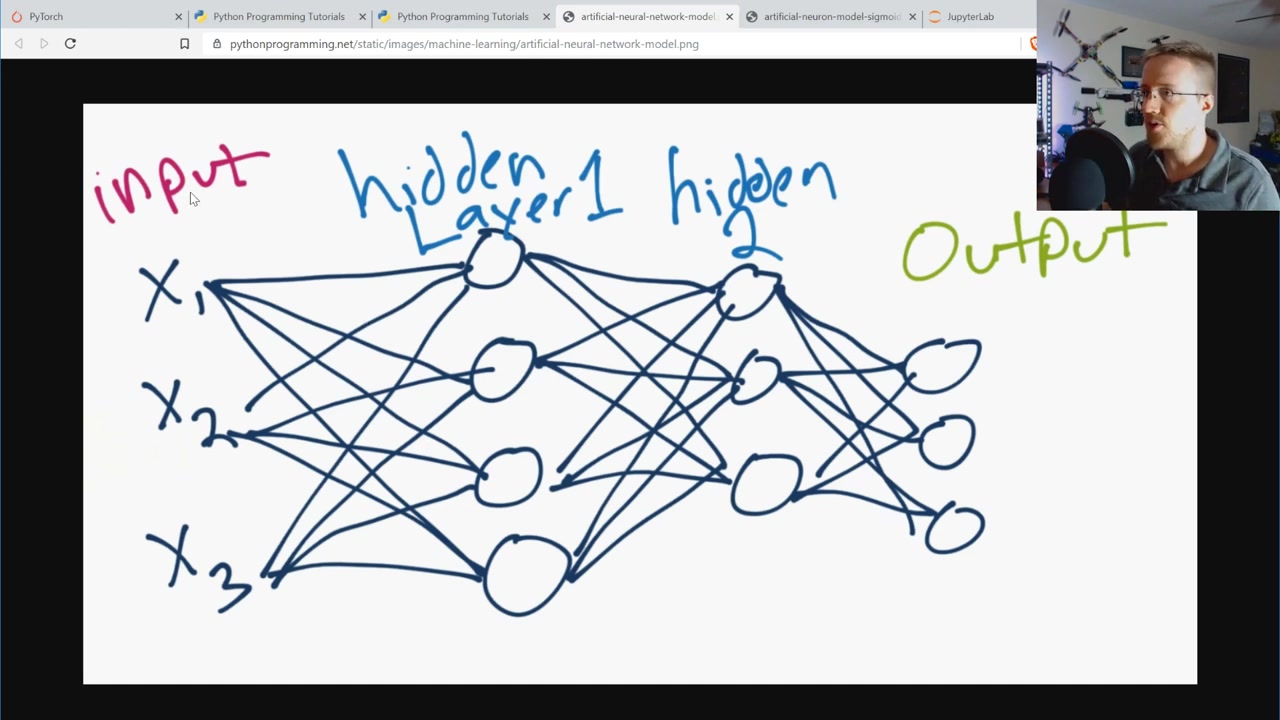 PyTorch
Python Programming Tutorials
Python Programming Tutorials
artificial-neural-network-model.
artificial-neuron-model-sigmoid
JupyterLab
pythonprogramming.net/static/images/machine-learning/artificial-neural-network-model.png
input
hidden
Layer 1
hidden
2
Output
X1
X2
X3